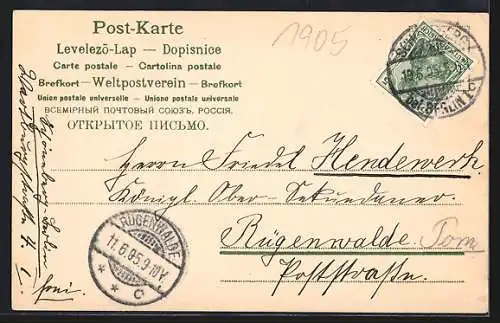 Post-Karte
Levelezö-Lap — Dopisnice
Carte postale — Cartolina postale
Brefkort — Weltpostverein — Brefkort
Union postale universelle — Unione postale universale
ВСЕМІРНЫЙ ПОЧТОВЫЙ СОЮЗЪ. РОССІЯ.
ОТКРЫТОЕ ПИСЬМО.
1905
Herrn Friedel Hendewerk
Königl. Ober-Sekundaner
Rügenwalde Pom
Poststraße.
RÜGENWALDE
11.6.05.9-10V.
* * c
Schöneberg Berlin
b